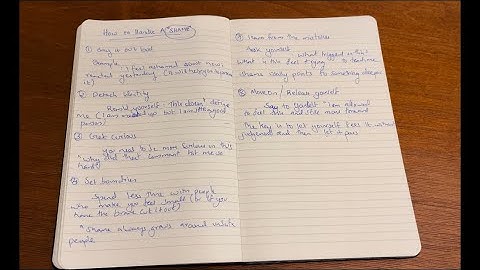 How to Handle A "SHAME"
① Say it out loud
Example
"I feel ashamed about how I
reacted yesterday (It will help to
it)
② Detach Identity
Remind yourself "This doesn't define
me (I am messed up but I am a good
person)
③ Get Curious
You need to be more Curious in this
"Why did that comment hit me so
hard?"
④ Set boundaries
Spend less time with people
who make you feel small (or if you
have the cut it out)
* Shame always grows around unsafe
people
⑤ Learn from the mistakes
Ask yourself
What triggered this
What is this feel trying to teach me
Shame always points to something deeper
⑥ Move on / Release yourself
Say to yourself "I am allowed
to feel this and still move forward
The key is to let yourself feel it without
judgement and then let it pass